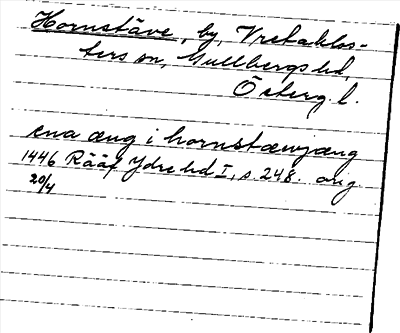 Hornstäve, by, Vretaklos-
ters sn, Gullbergs hd,
Östergl.
ena æng i hornstæwjæng
1446 Rääf Ydre hd I, s. 248. orig.
20/4